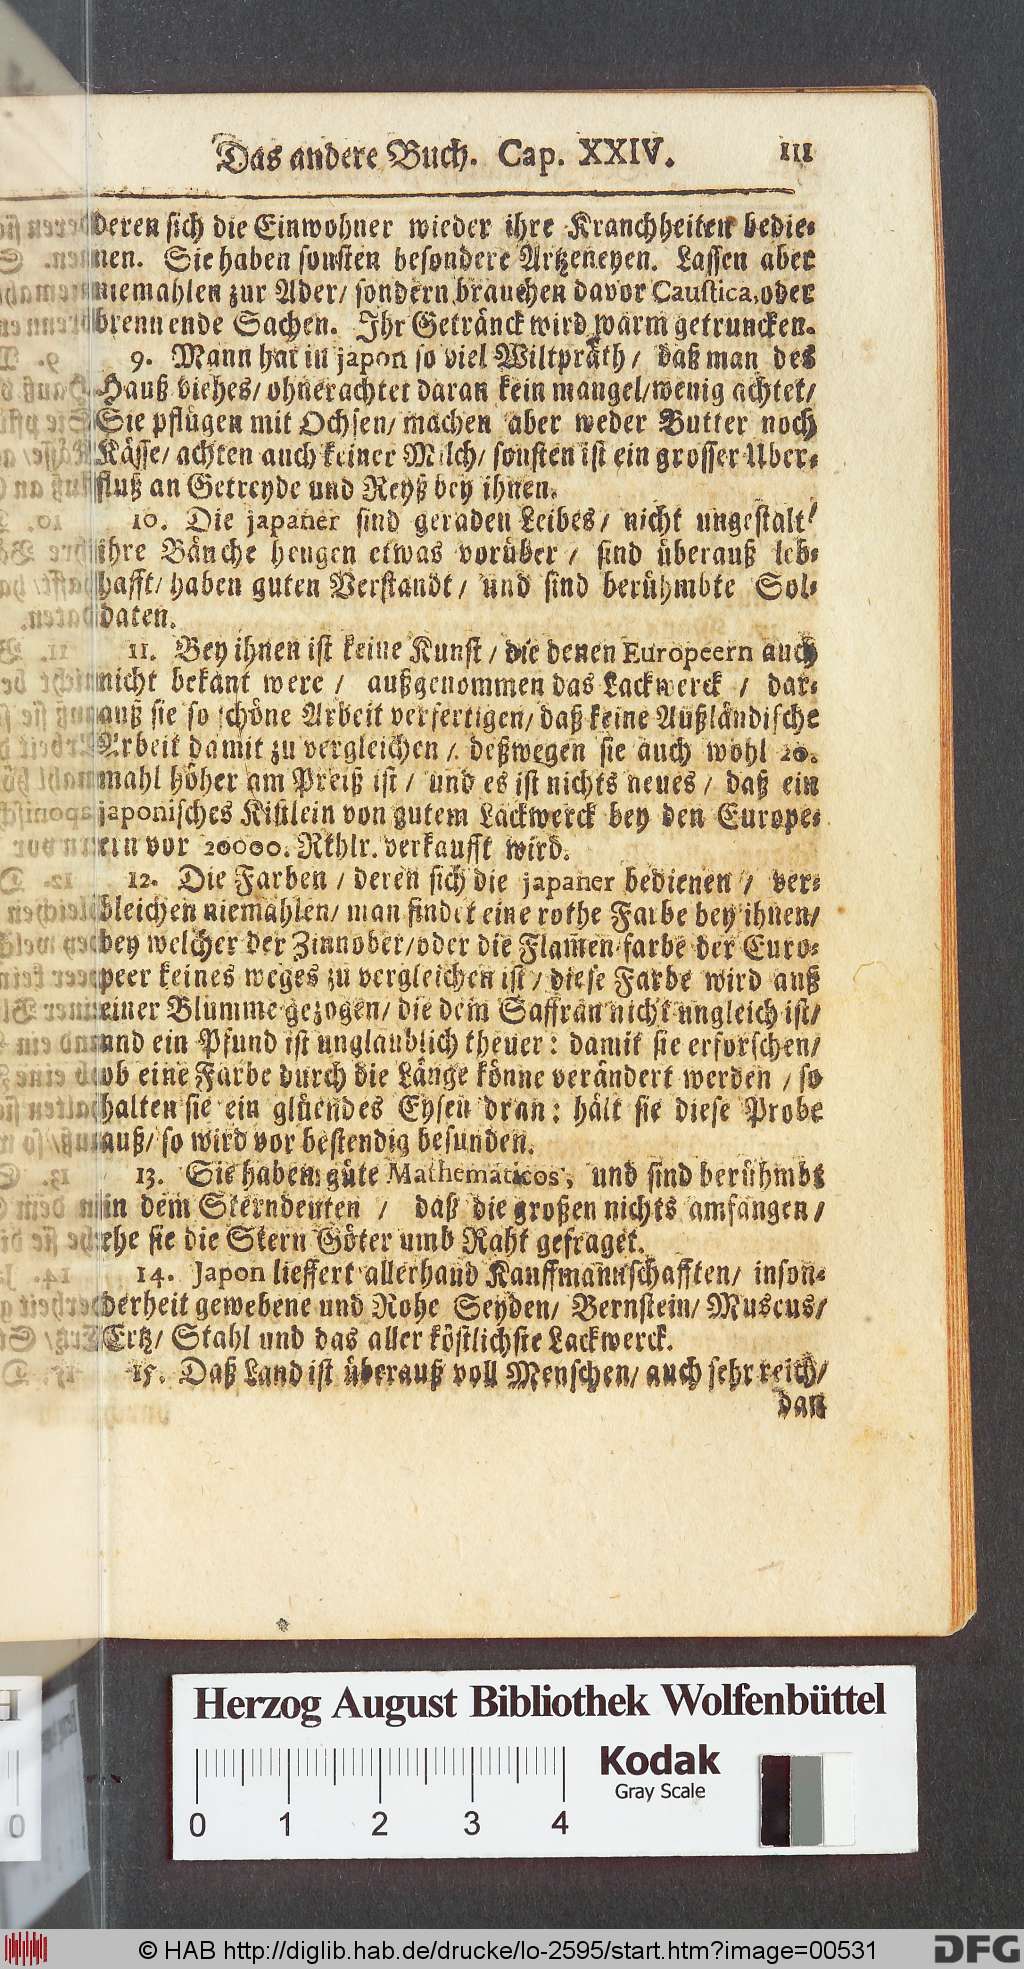 Das andere Buch. Cap. XXIV. 111
deren sich die Einwohner wieder ihre Kranchheiten bedie-
nen. Sie haben sonsten besondere Artzeneyen. Lassen aber
niemahlen zur Ader/ sondern brauchen davor Caustica, oder
brennende Sachen. Ihr Getränck wird warm getruncken.
9. Mann hat in japon so viel Wiltpräth/ daß man des
Hauß viehes/ ohnerachtet daran kein mangel/ wenig achtet/
Sie pflügen mit Ochsen/ machen aber weder Butter noch
Kässe/ achten auch keiner Milch/ sonsten ist ein grosser Uber-
fluß an Getreyde und Reyß bey ihnen.
10. Die japaner sind geraden Leibes/ nicht ungestalt/
ihre Bäuche hengen etwas vorüber/ sind überauß leb-
hafft/ haben guten Verstandt/ und sind berühmbte Sol-
daten.
11. Bey ihnen ist keine Kunst/ die denen Europeern auch
nicht bekant were/ außgenommen das Lackwerck/ dar-
auß sie so schöne Arbeit verfertigen/ daß keine Außländische
Arbeit damit zu vergleichen/ deßwegen sie auch wohl 20.
mahl höher am Preiß ist/ und es ist nichts neues/ daß ein
japonisches Kistlein von gutem Lackwerck bey den Europe-
ern vor 20000. Rthlr. verkaufft wird.
12. Die Farben/ deren sich die japaner bedienen/ ver-
bleichen niemahlen/ man findet eine rothe Farbe bey ihnen/
bey welcher der Zinnober/ oder die Flamen-farbe der Euro-
peer keines weges zu vergleichen ist/ diese Farbe wird auß
einer Blumme gezogen/ die dem Saffran nicht ungleich ist/
und ein Pfund ist unglaublich theuer: damit sie erforschen/
ob eine Farbe durch die Länge könne verändert werden/ so
halten sie ein glüendes Eysen dran: hält sie diese Probe
auß/ so wird vor bestendig befunden.
13. Sie haben güte Mathematicos, und sind berühmbt
in dem Sterndeuten/ daß die großen nichts amfangen/
ehe sie die Stern Göter umb Raht gefraget.
14. Japon lieffert allerhand Kauffmannschafften/ inson-
derheit gewebene und Rohe Seyden/ Bernstein/ Muscus/
Ertz/ Stahl und das aller köstlichste Lackwerck.
15. Daß Land ist überauß voll Menschen/ auch sehr reich/
dan
Herzog August Bibliothek Wolfenbüttel
Kodak
Gray Scale
0 1 2 3 4
© HAB http://diglib.hab.de/drucke/lo-2595/start.htm?image=00531
DFG